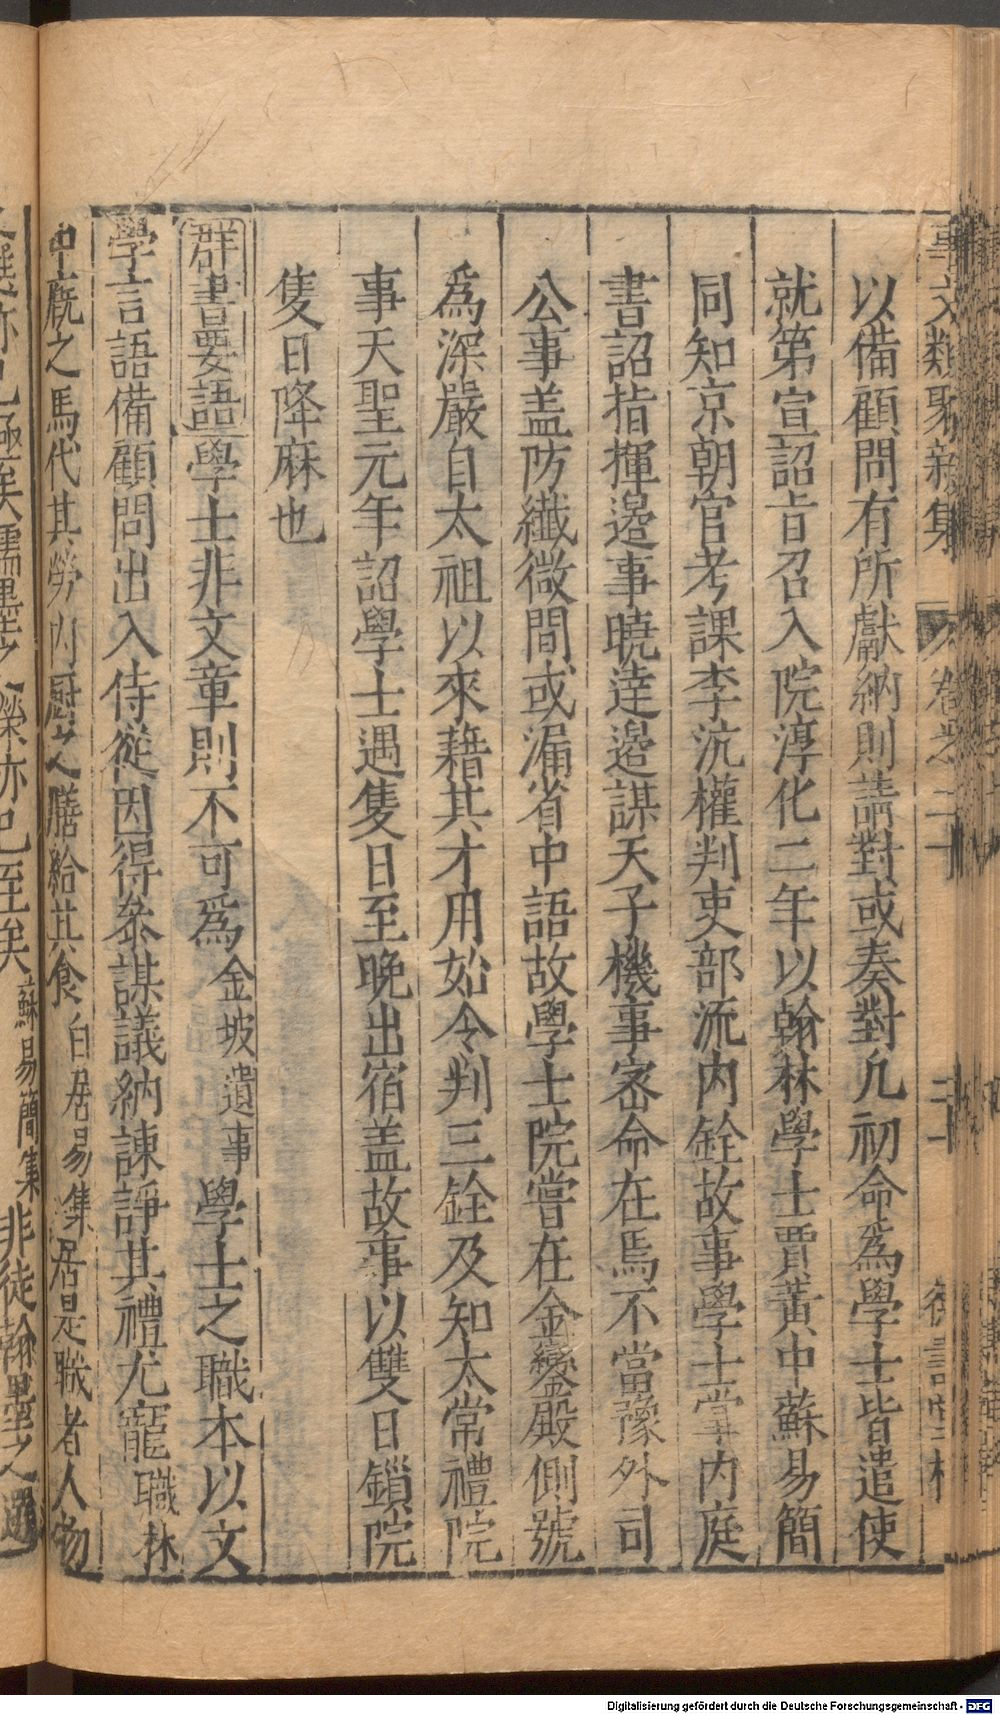 事文類聚新集 卷之二十 二十 德壽堂梓
以備顧問有所獻納則請對或奏對凢初命爲學士皆遣使
就第宣詔旨召入院淳化二年以翰林學士賈黃中蘇易簡
同知京朝官考課李沆權判吏部流内銓故事學士掌内庭
書詔指揮邉事曉逹邉謀天子機事宻命在焉不當豫外司
公事盖防纖微間或漏省中語故學士院嘗在金鑾殿側號
爲深嚴自太祖以來藉其才用始令判三銓及知太常禮院
事天聖元年詔學士遇隻日至晚出宿盖故事以雙日鎖院
隻日降麻也
群書要語學士非文章則不可爲金坡遺事學士之職本以文
學言語備顧問出入侍從因得叅謀議納諫諍其禮尤寵職林
中廐之馬代其勞内厨之膳給其食白居易集居是職者人物
之選亦已極矣儒墨之榮亦已至矣蘇易簡集非徒翰墨之選
Digitalisierung gefördert durch die Deutsche Forschungsgemeinschaft - DFG